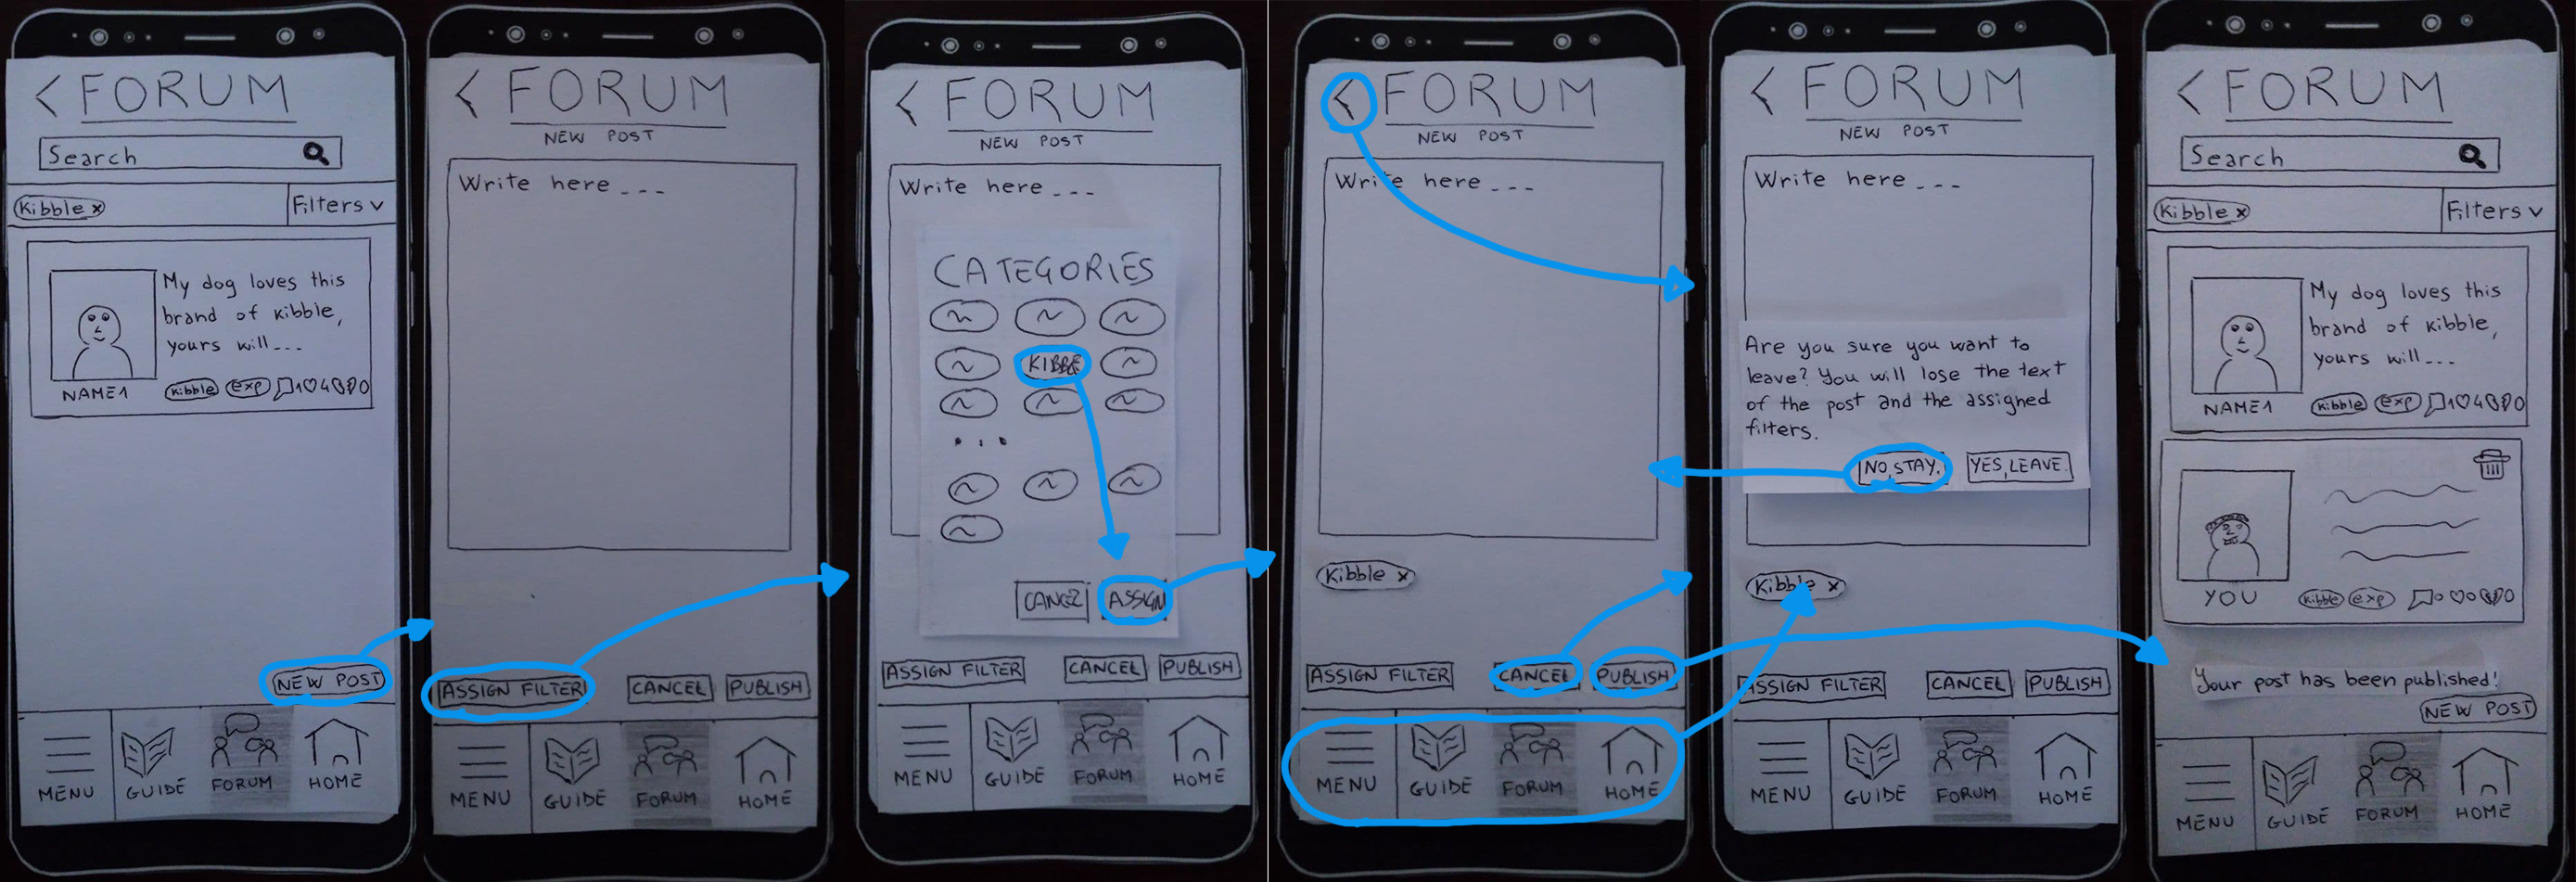 FORUM
Search
Kibble x
Filters v
My dog loves this
brand of kibble,
yours will...
NAME1
kibble exp 1 4 0
NEW POST
MENU GUIDE FORUM HOME
FORUM
NEW POST
Write here ...
ASSIGN FILTER CANCEL PUBLISH
MENU GUIDE FORUM HOME
FORUM
NEW POST
Write here ...
CATEGORIES
KIBBLE
CANCEL ASSIGN
ASSIGN FILTER CANCEL PUBLISH
MENU GUIDE FORUM HOME
FORUM
NEW POST
Write here ...
Kibble x
ASSIGN FILTER CANCEL PUBLISH
MENU GUIDE FORUM HOME
FORUM
NEW POST
Write here ...
Are you sure you want to
leave? You will lose the text
of the post and the assigned
filters.
NO, STAY. YES, LEAVE.
Kibble x
ASSIGN FILTER CANCEL PUBLISH
MENU GUIDE FORUM HOME
FORUM
Search
Kibble x
Filters v
My dog loves this
brand of kibble,
yours will...
NAME1
kibble exp 1 4 0
YOU
kibble exp 0 0 0
Your post has been published!
NEW POST
MENU GUIDE FORUM HOME